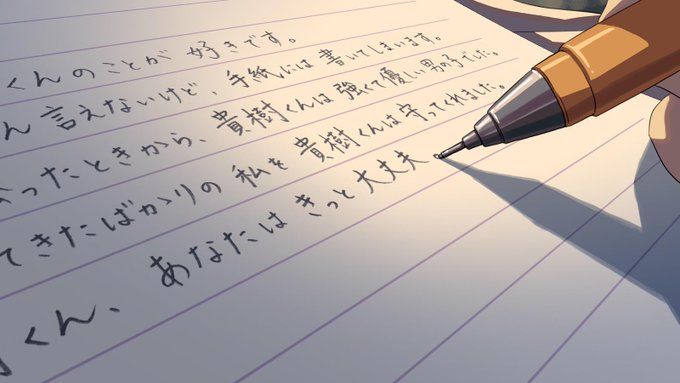 くんのことが 好きです。
ん 言えないけど、手紙には 書いてしまいます。
ったときから、貴樹くんは 強くて優しい男の子でした。
てきたばかりの 私を 貴樹くんは 守ってくれました。
くん、あなたは きっと 大丈夫。